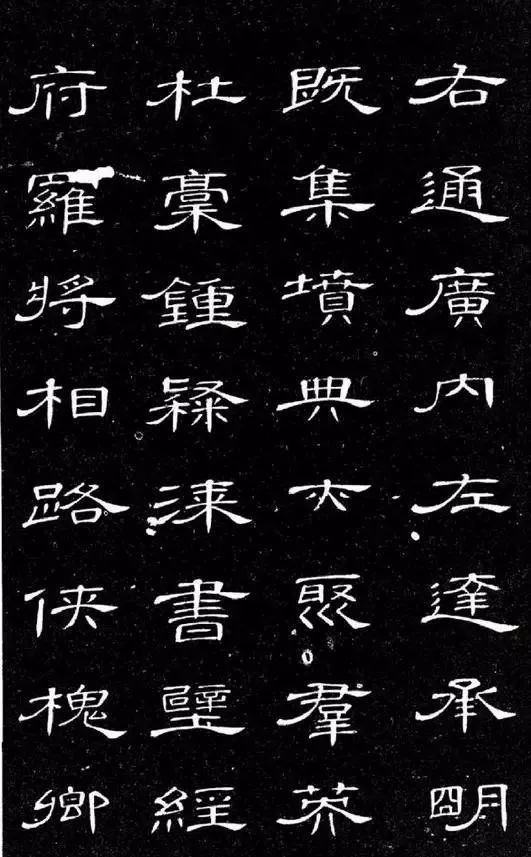 右通廣内左達承朙
既集墳典亦聚羣英
杜稾鍾隸漆書壁經
府羅將相路俠槐卿